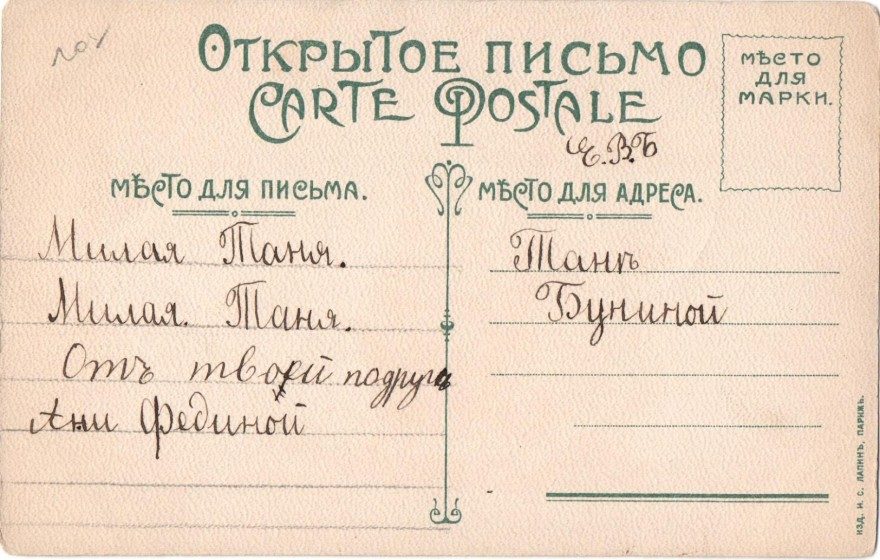 ОТКРЫТОЕ ПИСЬМО
CARTE POSTALE
МѢСТО
ДЛЯ
МАРКИ.
Е.В.Б
МѢСТО ДЛЯ ПИСЬМА.
Милая Таня.
Милая. Таня.
Отъ твоей подруги
Ани Фединой
МѢСТО ДЛЯ АДРЕСА.
Танѣ
Буниной
ИЗД. И. С. ЛАПИНЪ, ПАРИЖЪ.